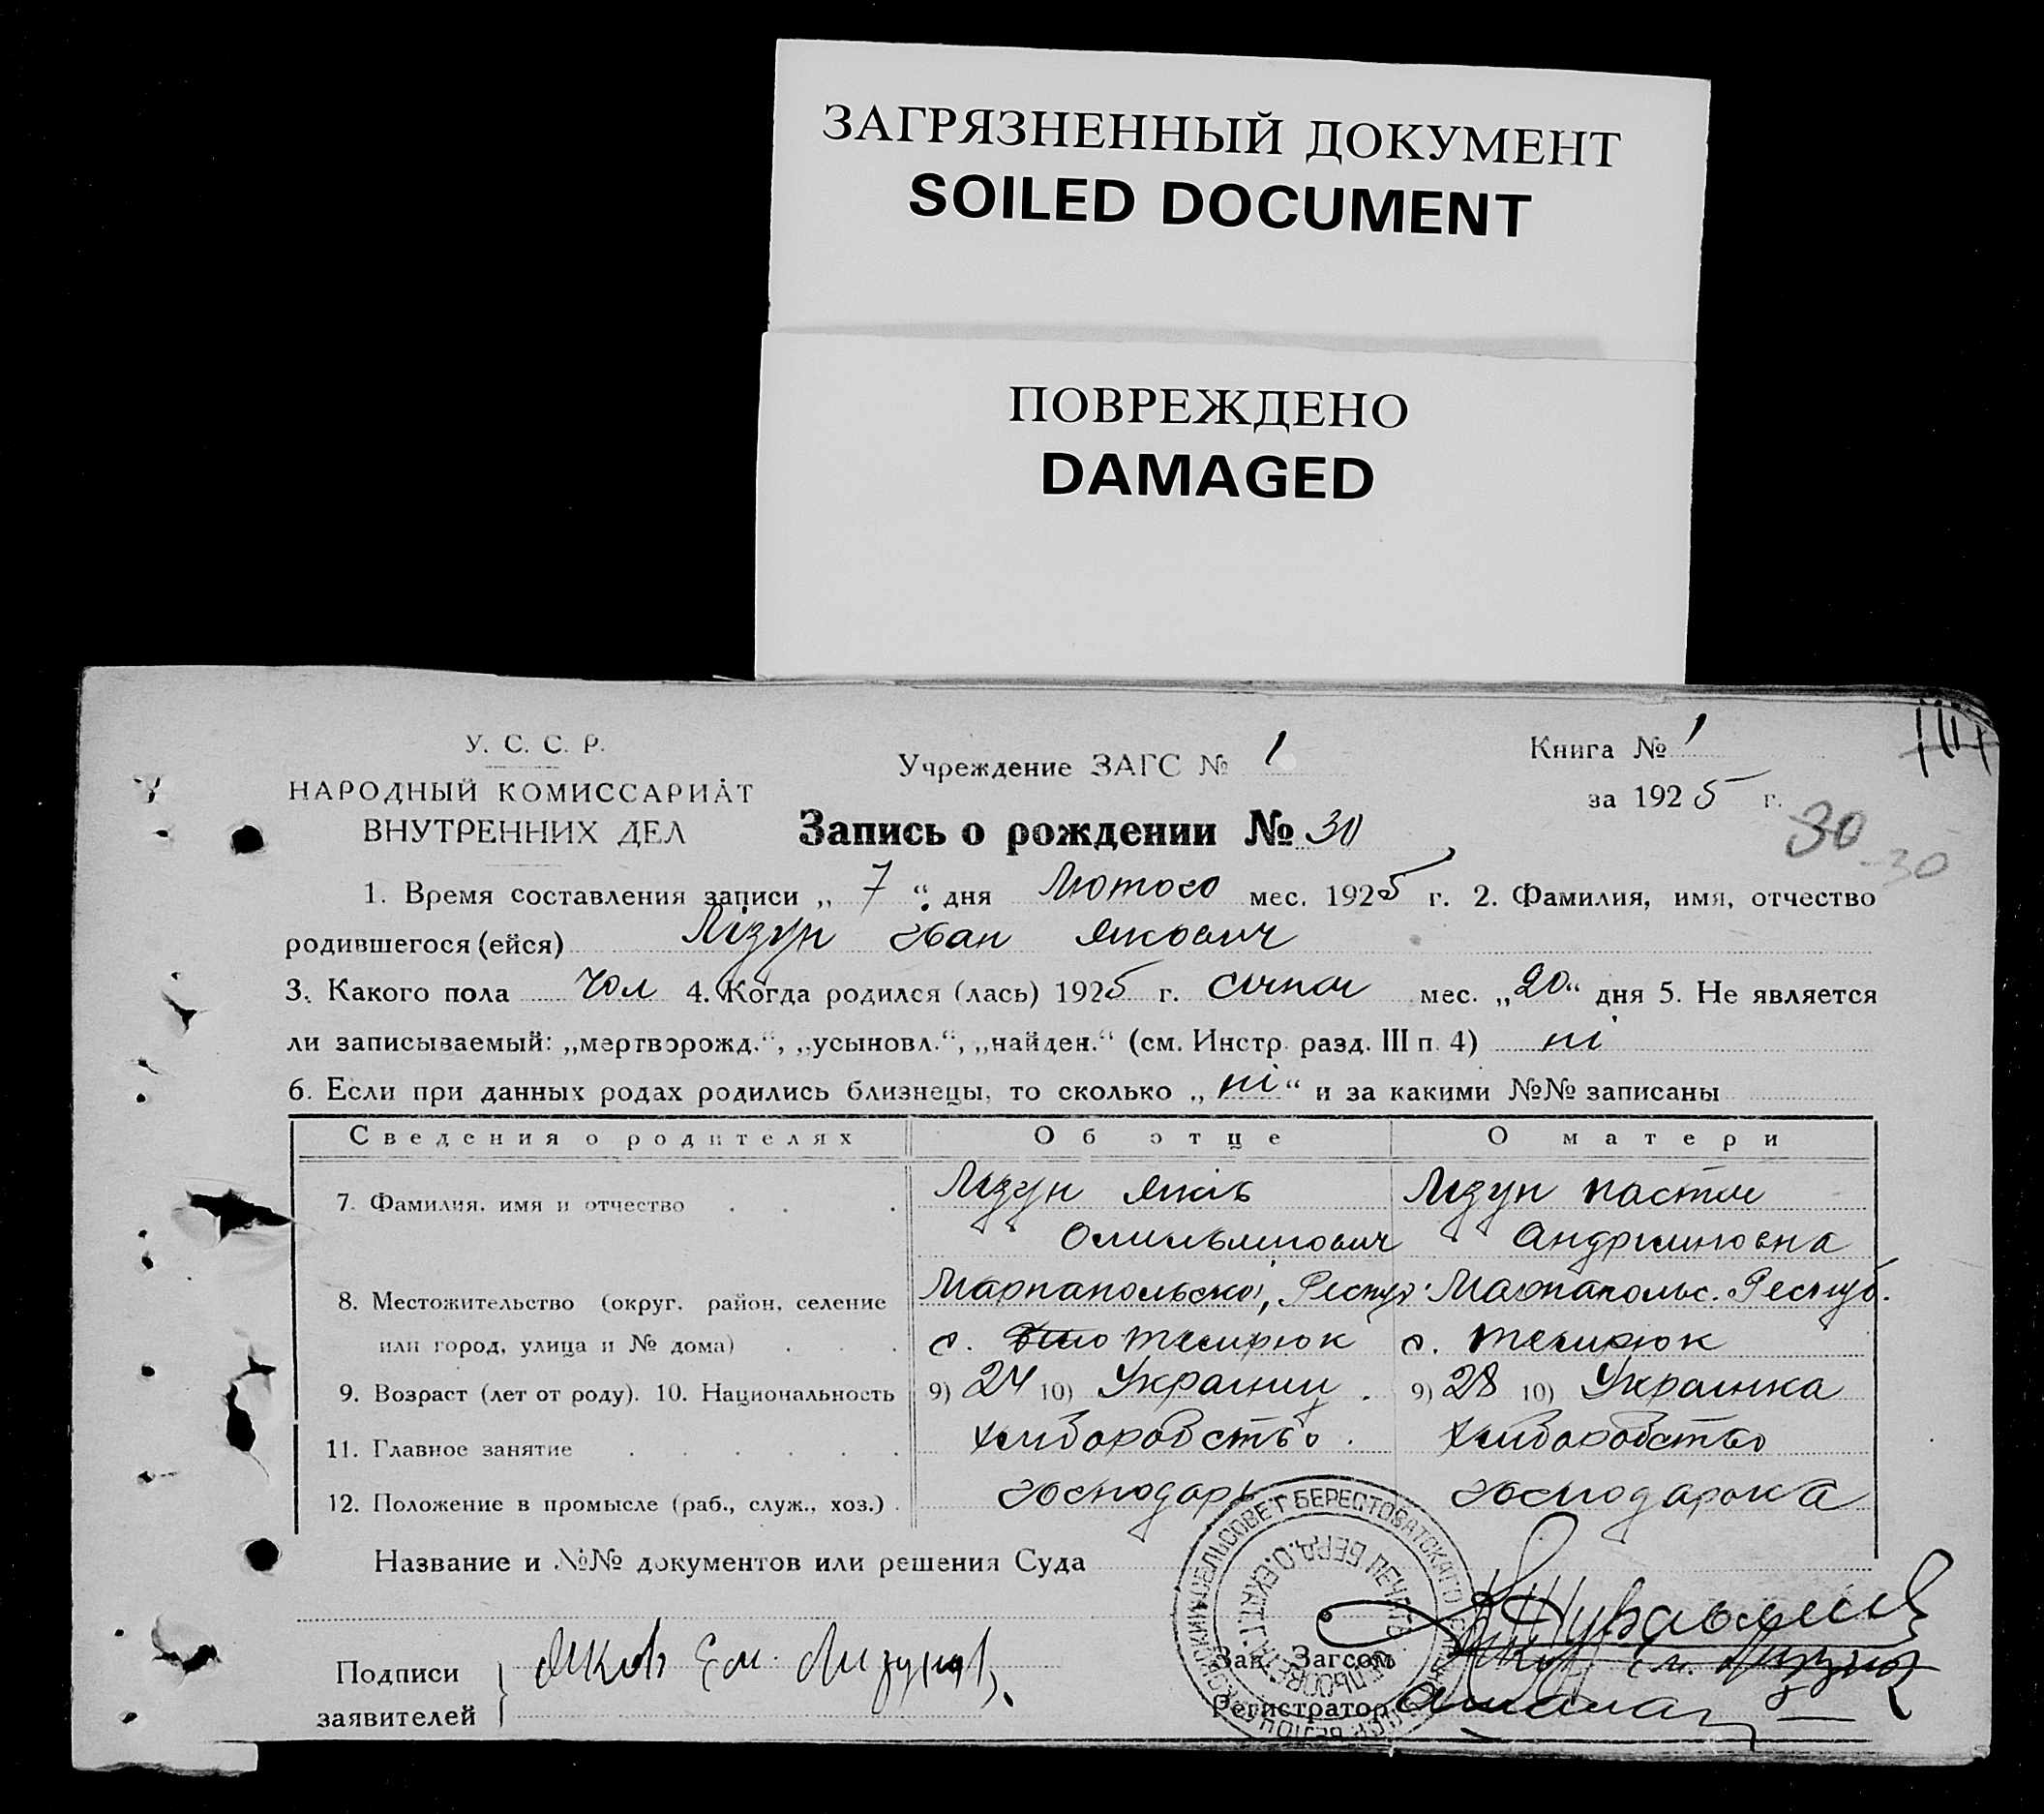 ЗАГРЯЗНЕННЫЙ ДОКУМЕНТ
SOILED DOCUMENT
ПОВРЕЖДЕНО
DAMAGED
У. С. С. Р.
НАРОДНЫЙ КОМИССАРИАТ
ВНУТРЕННИХ ДЕЛ
Учреждение ЗАГС № 1
Книга № 1
за 1925 г.
Запись о рождении № 30
30
30
1. Время составления записи „ 7 “ дня Лютого мес. 1925 г. 2. Фамилия, имя, отчество
родившегося (ейся) Лізун Іван Якович
3. Какого пола чол 4. Когда родился (лась) 1925 г. січня мес. „20“ дня 5. Не является
ли записываемый: „мертворожд.“, „усыновл.“, „найден.“ (см. Инстр. разд. III п. 4) ні
6. Если при данных родах родились близнецы, то сколько „ ні “ и за какими №№ записаны
Сведения о родителях Об отце О матери
7. Фамилия, имя и отчество Лізун Яків Лізун Настя
Омильянович Андріановна
8. Местожительство (округ, район, селение
или город, улица и № дома) с. Темрюк с. Темрюк
9. Возраст (лет от роду). 10. Национальность 9) 24 10) Украинц. 9) 28 10) Украинка
11. Главное занятие хлиборобство. хлиборобство
12. Положение в промысле (раб., служ., хоз.) господарь господарка
Название и №№ документов или решения Суда
Подписи
заявителей
Яков Ем. Лизунов
Зав. Загсом
Регистратор